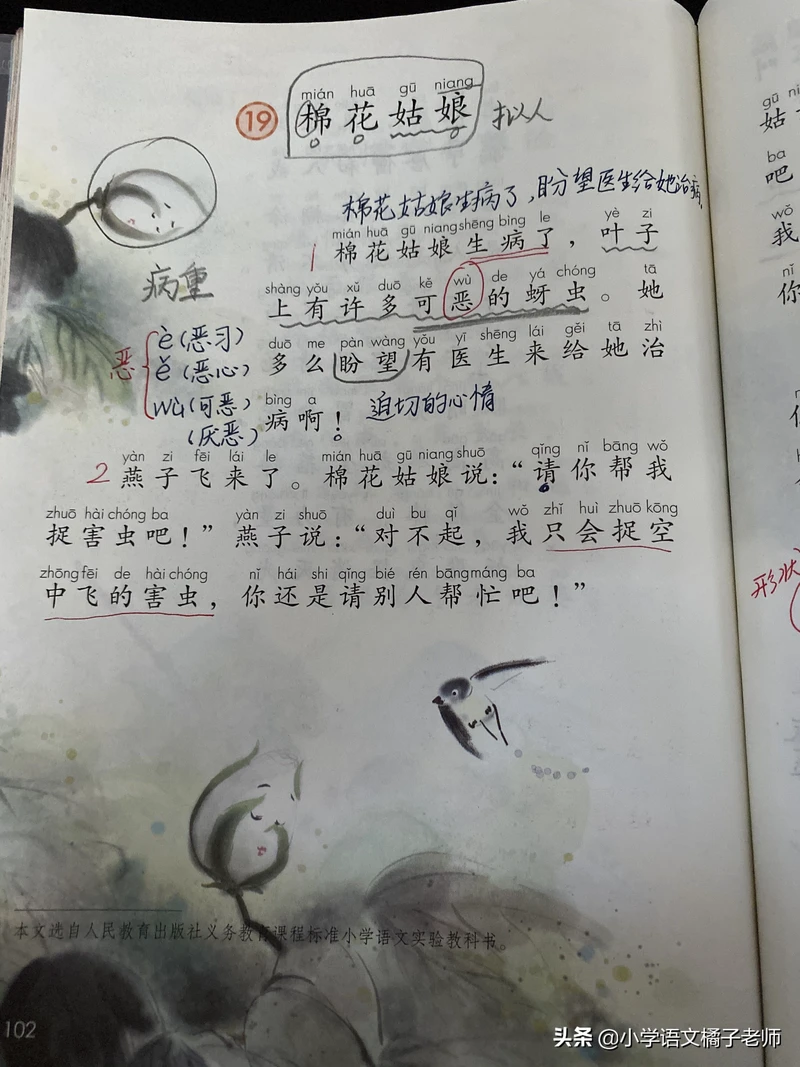 mián huā gū niang
19 棉花姑娘 拟人
棉花姑娘生病了，盼望医生给她治病
mián huā gū niang shēng bìng le yè zi
1 棉花姑娘生病了，叶子
病重
shàng yǒu xǔ duō kě wù de yá chóng tā
上有许多可恶的蚜虫。她
duō me pàn wàng yǒu yī shēng lái gěi tā zhì
多么盼望有医生来给她治
恶
è（恶习）
ě（恶心）
wù（可恶）
（厌恶）
bìng a
病啊！ 迫切的心情
yàn zi fēi lái le mián huā gū niang shuō qǐng nǐ bāng wǒ
2 燕子飞来了。棉花姑娘说：“请你帮我
zhuō hài chóng ba yàn zi shuō duì bu qǐ wǒ zhǐ huì zhuō kōng
捉害虫吧！”燕子说：“对不起，我只会捉空
zhōng fēi de hài chóng nǐ hái shi qǐng bié rén bāng máng ba
中飞的害虫，你还是请别人帮忙吧！”
本文选自人民教育出版社义务教育课程标准小学语文实验教科书。
102
gū
姑
ba
吧
wǒ
我
nǐ
你
形状
头条 @小学语文橘子老师